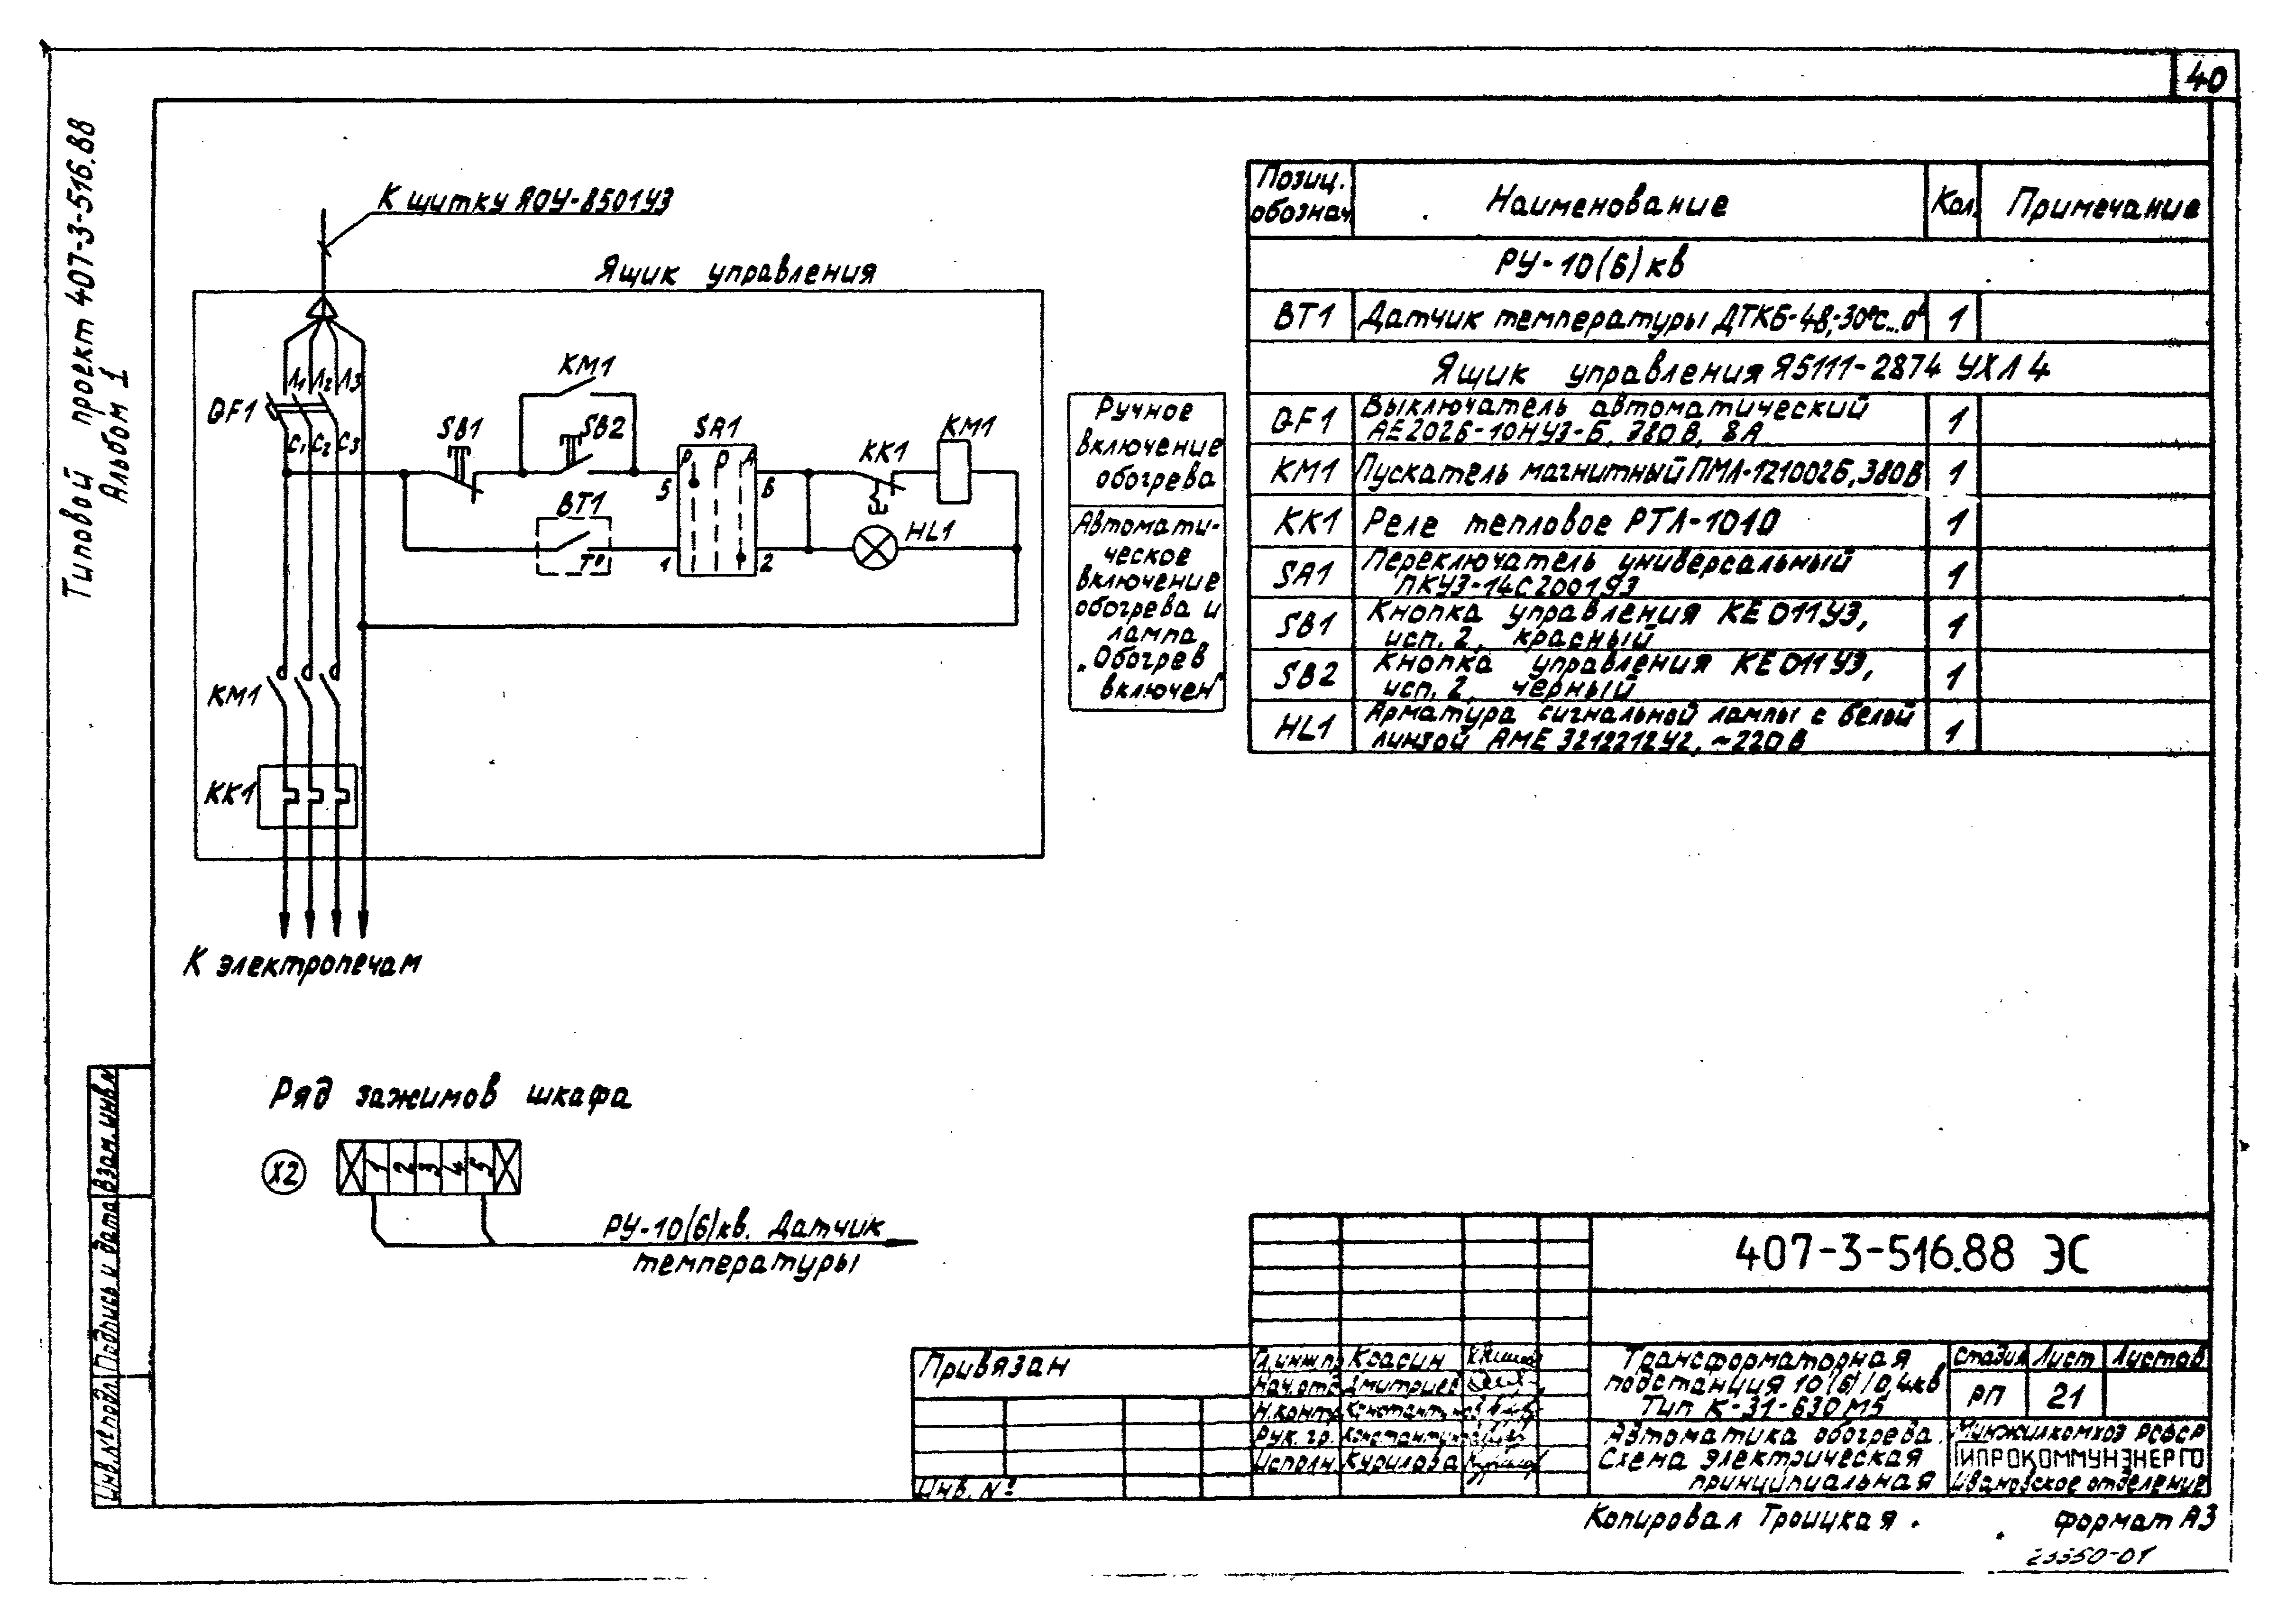 40
Типовой проект 407-3-516.88
Альбом 1
К щитку ЯОУ-8501У3
Ящик управления
Л1 Л2 Л3
QF1
С1 С2 С3
KM1
SB1
SB2
SA1
Р О А
5
6
1
2
BT1
T°
KK1
KM1
HL1
KM1
KK1
К электропечам
Ручное
включение
обогрева
Автомати-
ческое
включение
обогрева и
лампа
„Обогрев
включен"
Позиц. обознач.
Наименование
Кол.
Примечание
РУ-10(6)кв
BT1 Датчик температуры ДТКБ-48,-30°С...0° 1
Ящик управления Я5111-2874 УХЛ4
QF1 Выключатель автоматический
АЕ2026-10НУ3-Б, 380В, 8А 1
KM1 Пускатель магнитный ПМЛ-121002Б,380В 1
KK1 Реле тепловое РТЛ-1010 1
SA1 Переключатель универсальный
ПКУ3-14С2001У3 1
SB1 Кнопка управления КЕ011У3,
исп. 2, красный 1
SB2 Кнопка управления КЕ011У3,
исп. 2, черный 1
HL1 Арматура сигнальной лампы с белой
линзой АМЕ321221242, ~220В 1
Ряд зажимов шкафа
X2
1 2 3 4 5
РУ-10(6)кв. Датчик
температуры
Взам. инв.№
Подпись и дата
Инв.№ подл.
Привязан
Инв. №
407-3-516.88 ЭС
Гл.инж.пр. Красин
Нач.отд. Дмитриев
Н.контр. Константинов
Рук. гр. Константинов
Исполн. Курилова
Трансформаторная
подстанция 10(6)/0,4кв
Тип К-31-630М5
Стадия Лист Листов
РП 21
Автоматика обогрева.
Схема электрическая
принципиальная
Минжилкомхоз РСФСР
ГИПРОКОММУНЭНЕРГО
Ивановское отделение
Копировал Троицкая.
Формат А3
23350-01